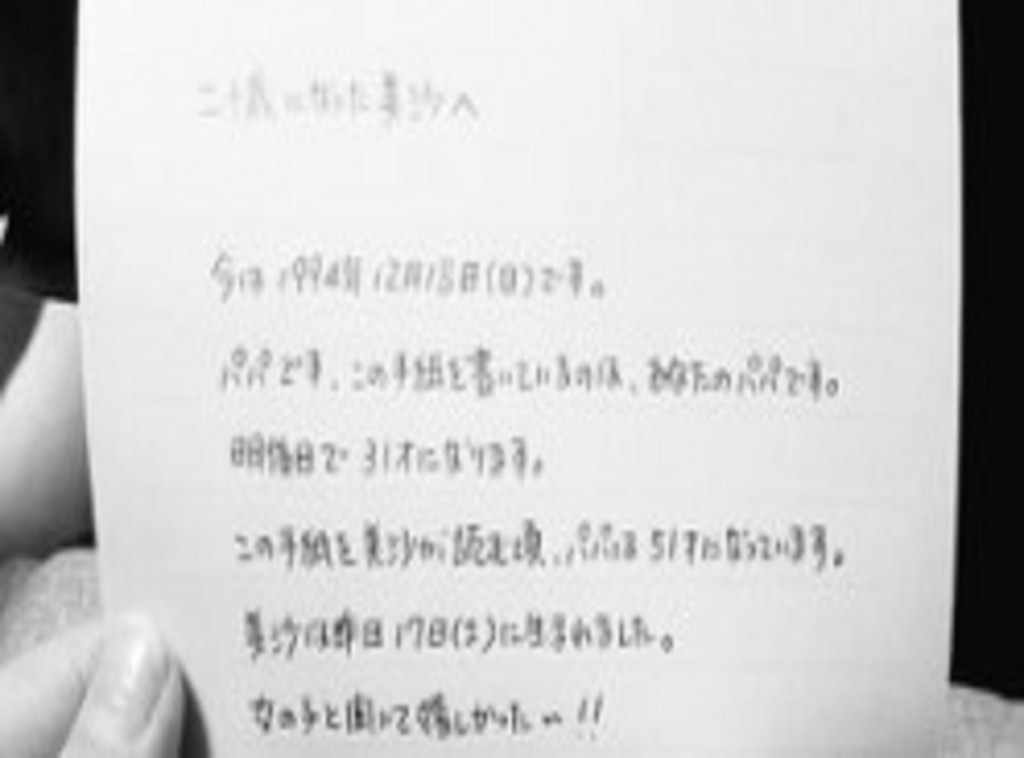 二十歳になった美沙へ
今は1994年12月18日(日)です。
パパです、この手紙を書いているのは、あなたのパパです。
明後日で31才になります。
この手紙を美沙が読む頃、パパは51才になっています。
美沙は昨日17日(土)に生まれました。
女の子と聞いて嬉しかったー!!